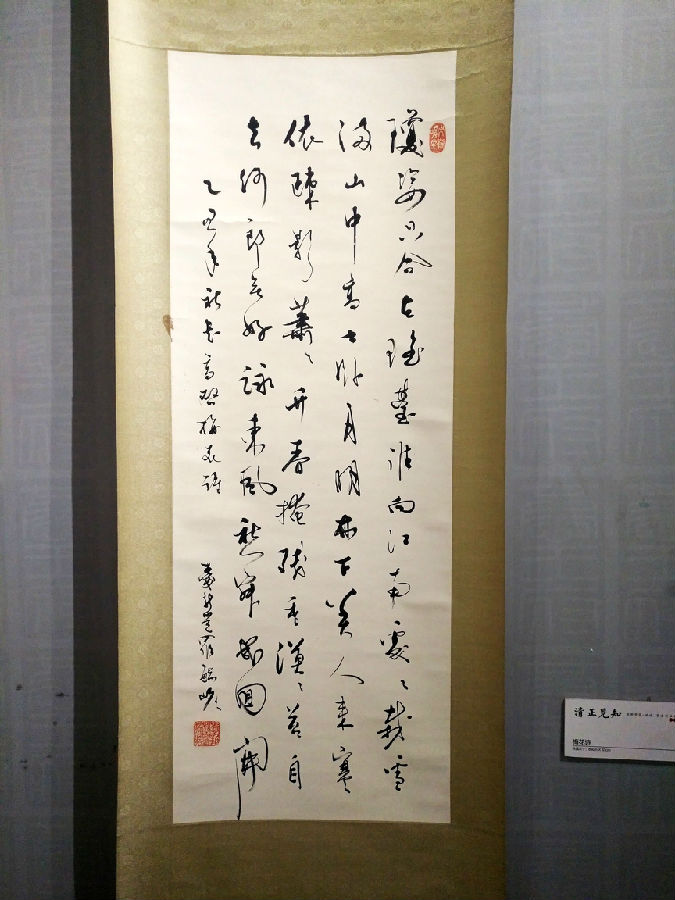 瓊姿只合在瑤臺誰向江南處〻栽雪
滿山中高士卧月明林下美人来寒
依疎影蕭〻竹春掩殘香漠〻苔自
去何郎无好詠東風愁寂幾回開
乙丑年秋書高啓梅花詩
清正見知
梅花诗